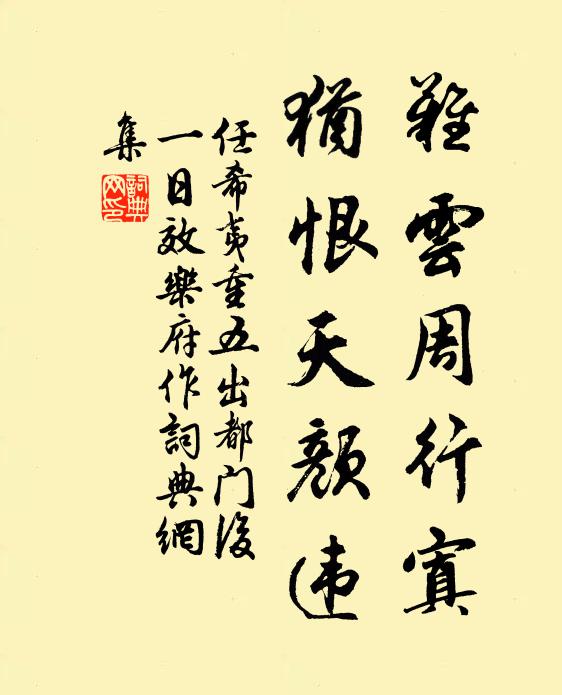 難雲周行寘
猶恨天顏违
任希夷重五出都门後
一日效樂府作詞典網
集
詞典網印